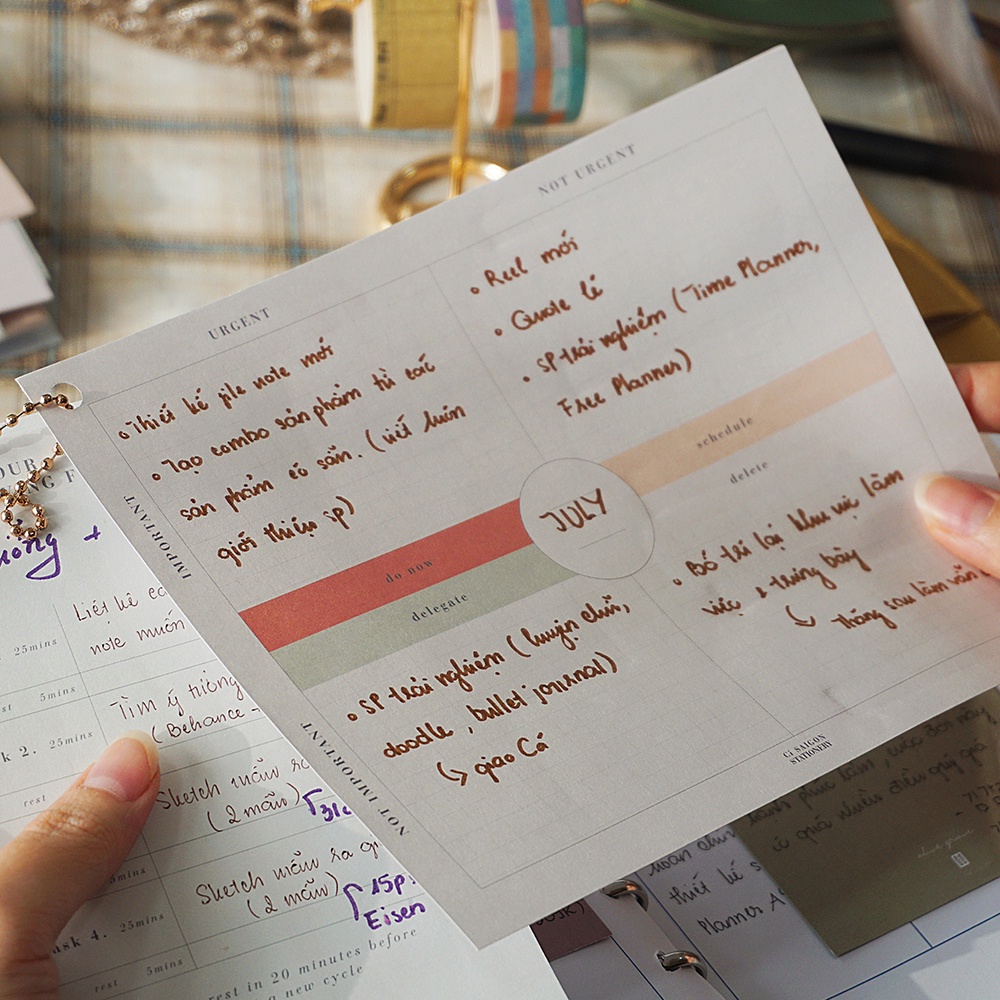 URGENT
NOT URGENT
IMPORTANT
NOT IMPORTANT
Thiết kế file note mới
Tạo combo sản phẩm từ các
sản phẩm có sẵn. (viết luôn
giới thiệu sp)
Reel mới
Quote lẻ
SP trải nghiệm (Time Planner,
Free Planner)
do now
delegate
JULY
schedule
delete
SP trải nghiệm (luyện chữ,
doodle, bullet journal)
↳ giao Cá
Bố trí lại khu vực làm
việc + trưng bày
↳ tháng sau làm vẫn
Ci SAIGON
STATIONERY
OUR
+
25mins
Liệt kê
note muốn
5mins
k 2. 25mins
Tìm ý tưởng
(Behance -
rest
Sketch mẫu ra
(2 mẫu)
5mins
Sketch mẫu ra
(2 mẫu)
15p
Eisen
ask 4. 25mins
5mins
rest in 20 minutes before
a new cycle
thiết kế
Planner